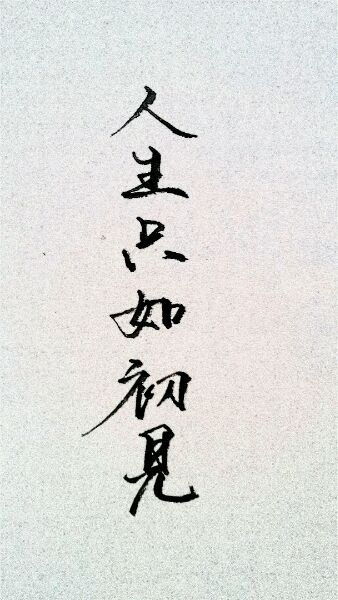 人生只如初見